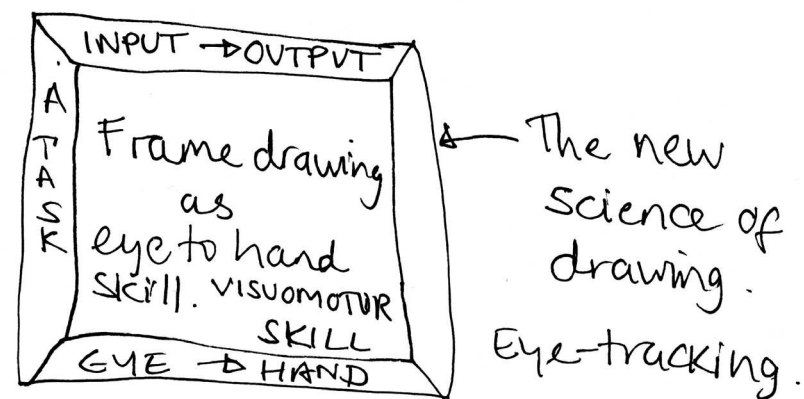 INPUT → OUTPUT
A TASK
Frame drawing
as
eye to hand
skill. VISUOMOTUR
SKILL
EYE → HAND
The new
science of
drawing.
Eye-tracking.